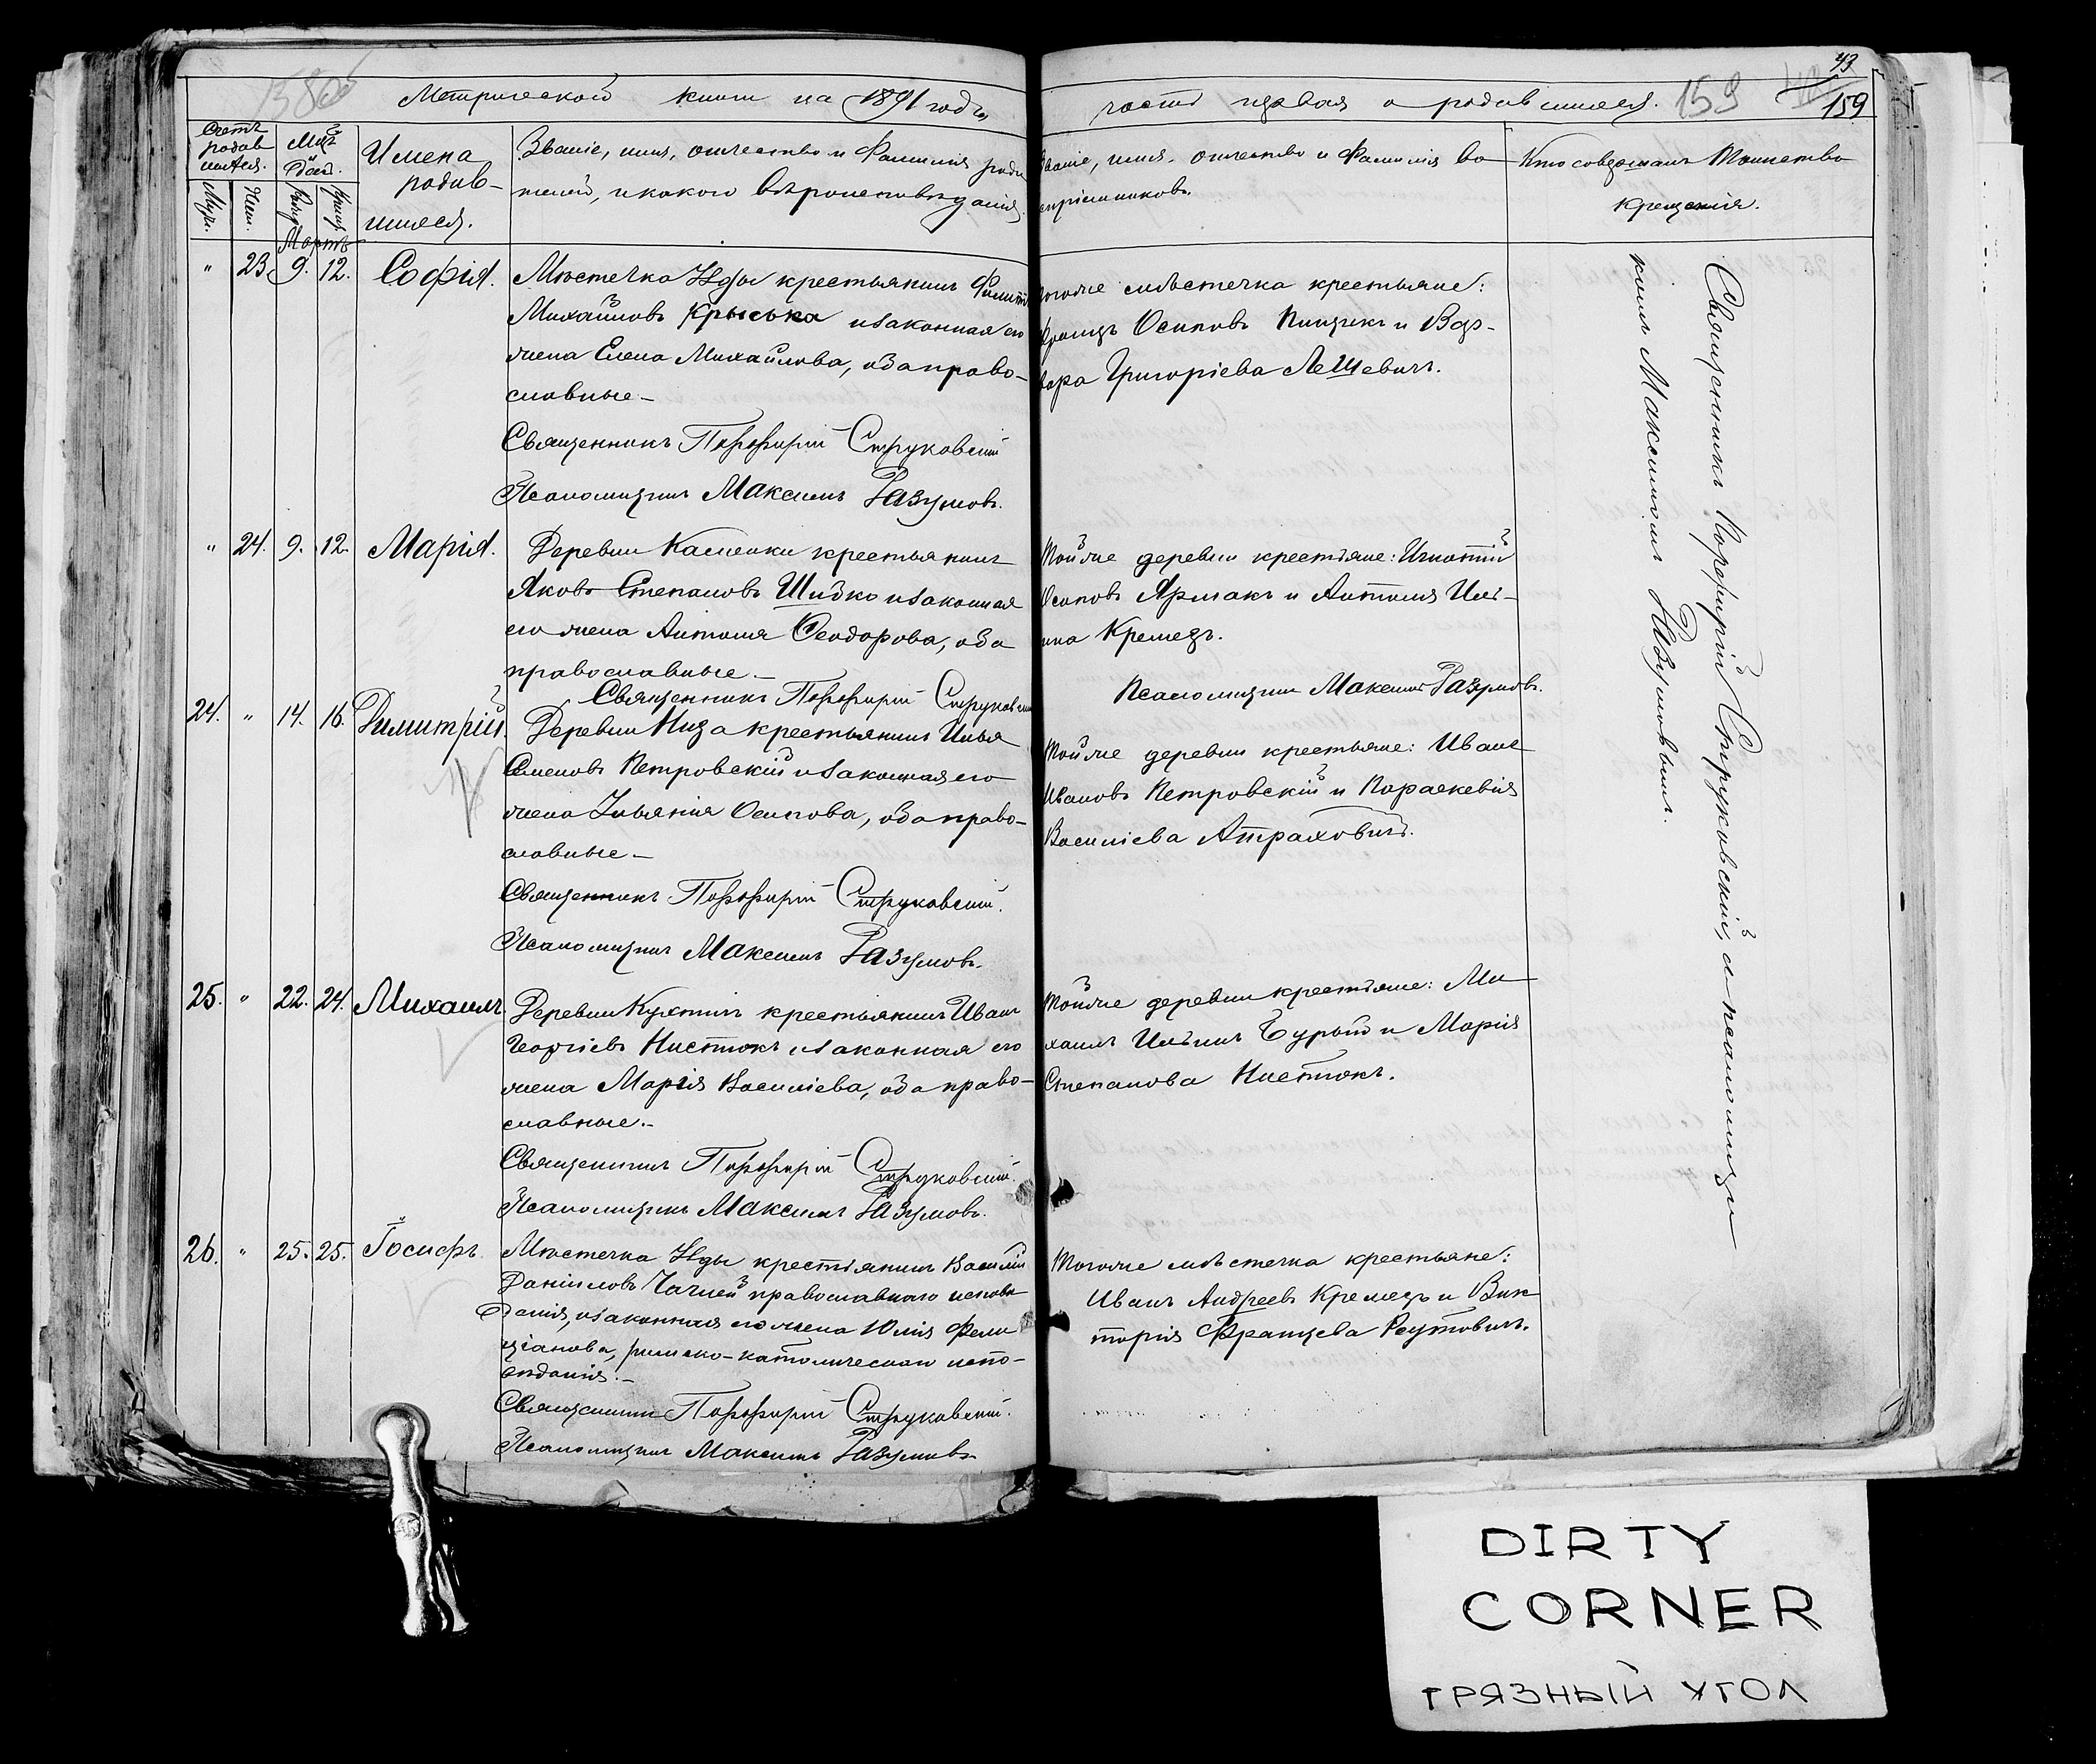 43
159
159
Метрической книги на 1891 годъ,
часть первая о родившихся.
Счетъ родившихся.
Муж.
Жен.
Мѣс. и день.
Имена родив-
шихся.
Званіе, имя, отчество и фамилія роди-
телей, и какого вѣроисповѣданія.
Званіе, имя, отчество и фамилія во-
спріемниковъ.
Кто совершалъ Таинство
крещенія.
Мартъ
" 23. 9. 12. Софія.
Мѣстечка Узды крестьянинъ
Михайловъ Крыська и законная его
жена Елена Михайлова, оба право-
славные –
Священникъ Порфирій Струковскій
Псаломщикъ Максимъ Разумовъ.
Тогоже мѣстечка крестьяне:
Францъ Осиповъ Пищикъ и Вар-
вара Григоріева Лешевичъ.
" 24. 9. 12. Марія.
Деревни Каменки крестьянинъ
Яковъ Степановъ Шидко и законная
его жена Антонія Ѳеодорова, оба
православные. –
Священникъ Порфирій Струковскій
Тойже деревни крестьяне: Игнатій
Осиповъ Ярмакъ и Антонія Иль-
ина Кремезъ.
Псаломщикъ Максимъ Разумовъ.
24. " 14. 16. Димитрій.
Деревни Низа крестьянинъ Илья
Семеновъ Петровскій и законная его
жена Ульянія Осипова, оба право-
славные –
Священникъ Порфирій Струковскій.
Псаломщикъ Максимъ Разумовъ.
Тойже деревни крестьяне: Иванъ
Ивановъ Петровскій и Параскевія
Василіева Атраховичъ.
25. " 22. 24. Михаилъ.
Деревни Кухтичъ крестьянинъ Иванъ
Георгіевъ Нистюкъ и законная его
жена Марія Василіева, оба право-
славные. –
Священникъ Порфирій Струковскій.
Псаломщикъ Максимъ Разумовъ.
Тойже деревни крестьяне: Ми-
хаилъ Ильинъ Бурый и Марія
Степанова Нистюкъ.
26. " 25. 25. Іосифъ.
Мѣстечка Узды крестьянинъ Василій
Даніиловъ православнаго исповѣ-
данія, и законная его жена Юлія Фели-
ціанова, римско-католическаго испо-
вѣданія. –
Священникъ Порфирій Струковскій.
Псаломщикъ Максимъ Разумовъ
Тогоже мѣстечка крестьяне:
Иванъ Андреевъ Кремезъ и Вик-
торія Францева Реутовичъ.
Священникъ Порфирій Струковскій, съ псаломщи-
комъ Максимомъ Разумовымъ.
DIRTY
CORNER
ГРЯЗНЫЙ УГОЛ